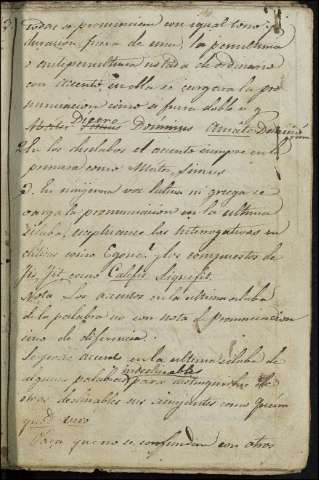 todas se pronuncian con igual tono i
duracion, fuera de una, la penultima
o antepenultima notada de ordinario
con acento en ella se cargara la pro
nunciacion como si fuera doble v. g.
Dicere
Dóminus Amáto
2. En las disilabas el acento siempre en la
primera como Mater,
3. En ninguna voz latina ni griega se
carga la pronunciacion en la ultima
silaba, exceptuanse las interrogativas en
cliticas como Egone? y los compuestos de
fio, fit como Calefit
Nota Los acentos en la ultima silaba
de la palabra no son nota de pronunciacion
sino de diferencia.
Se pone acento en la ultima silaba de
indeclinables
algunas palabras para distinguirlas de
otras declinables sus semejantes como
quod vero
Para que no se confundan con otros